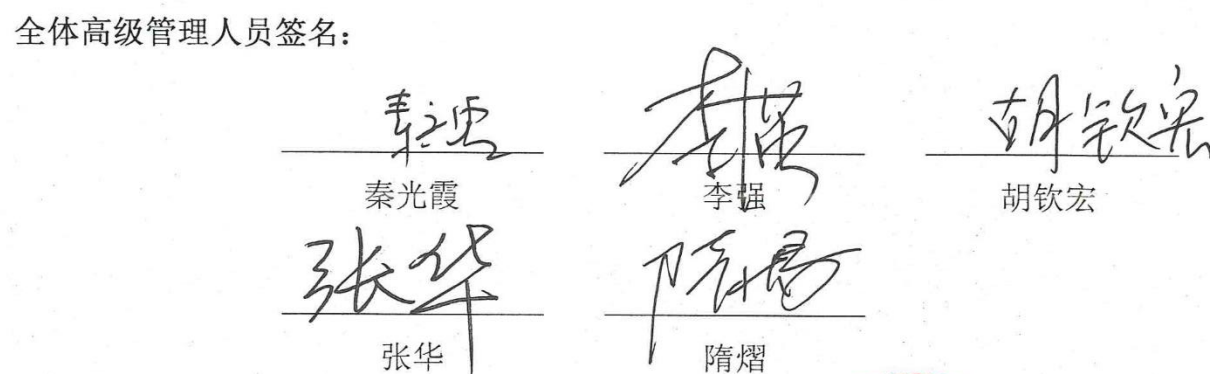 全体高级管理人员签名：
秦光霞 李强 胡钦宏
秦光霞 李强 胡钦宏
张华 隋熠
张华 隋熠